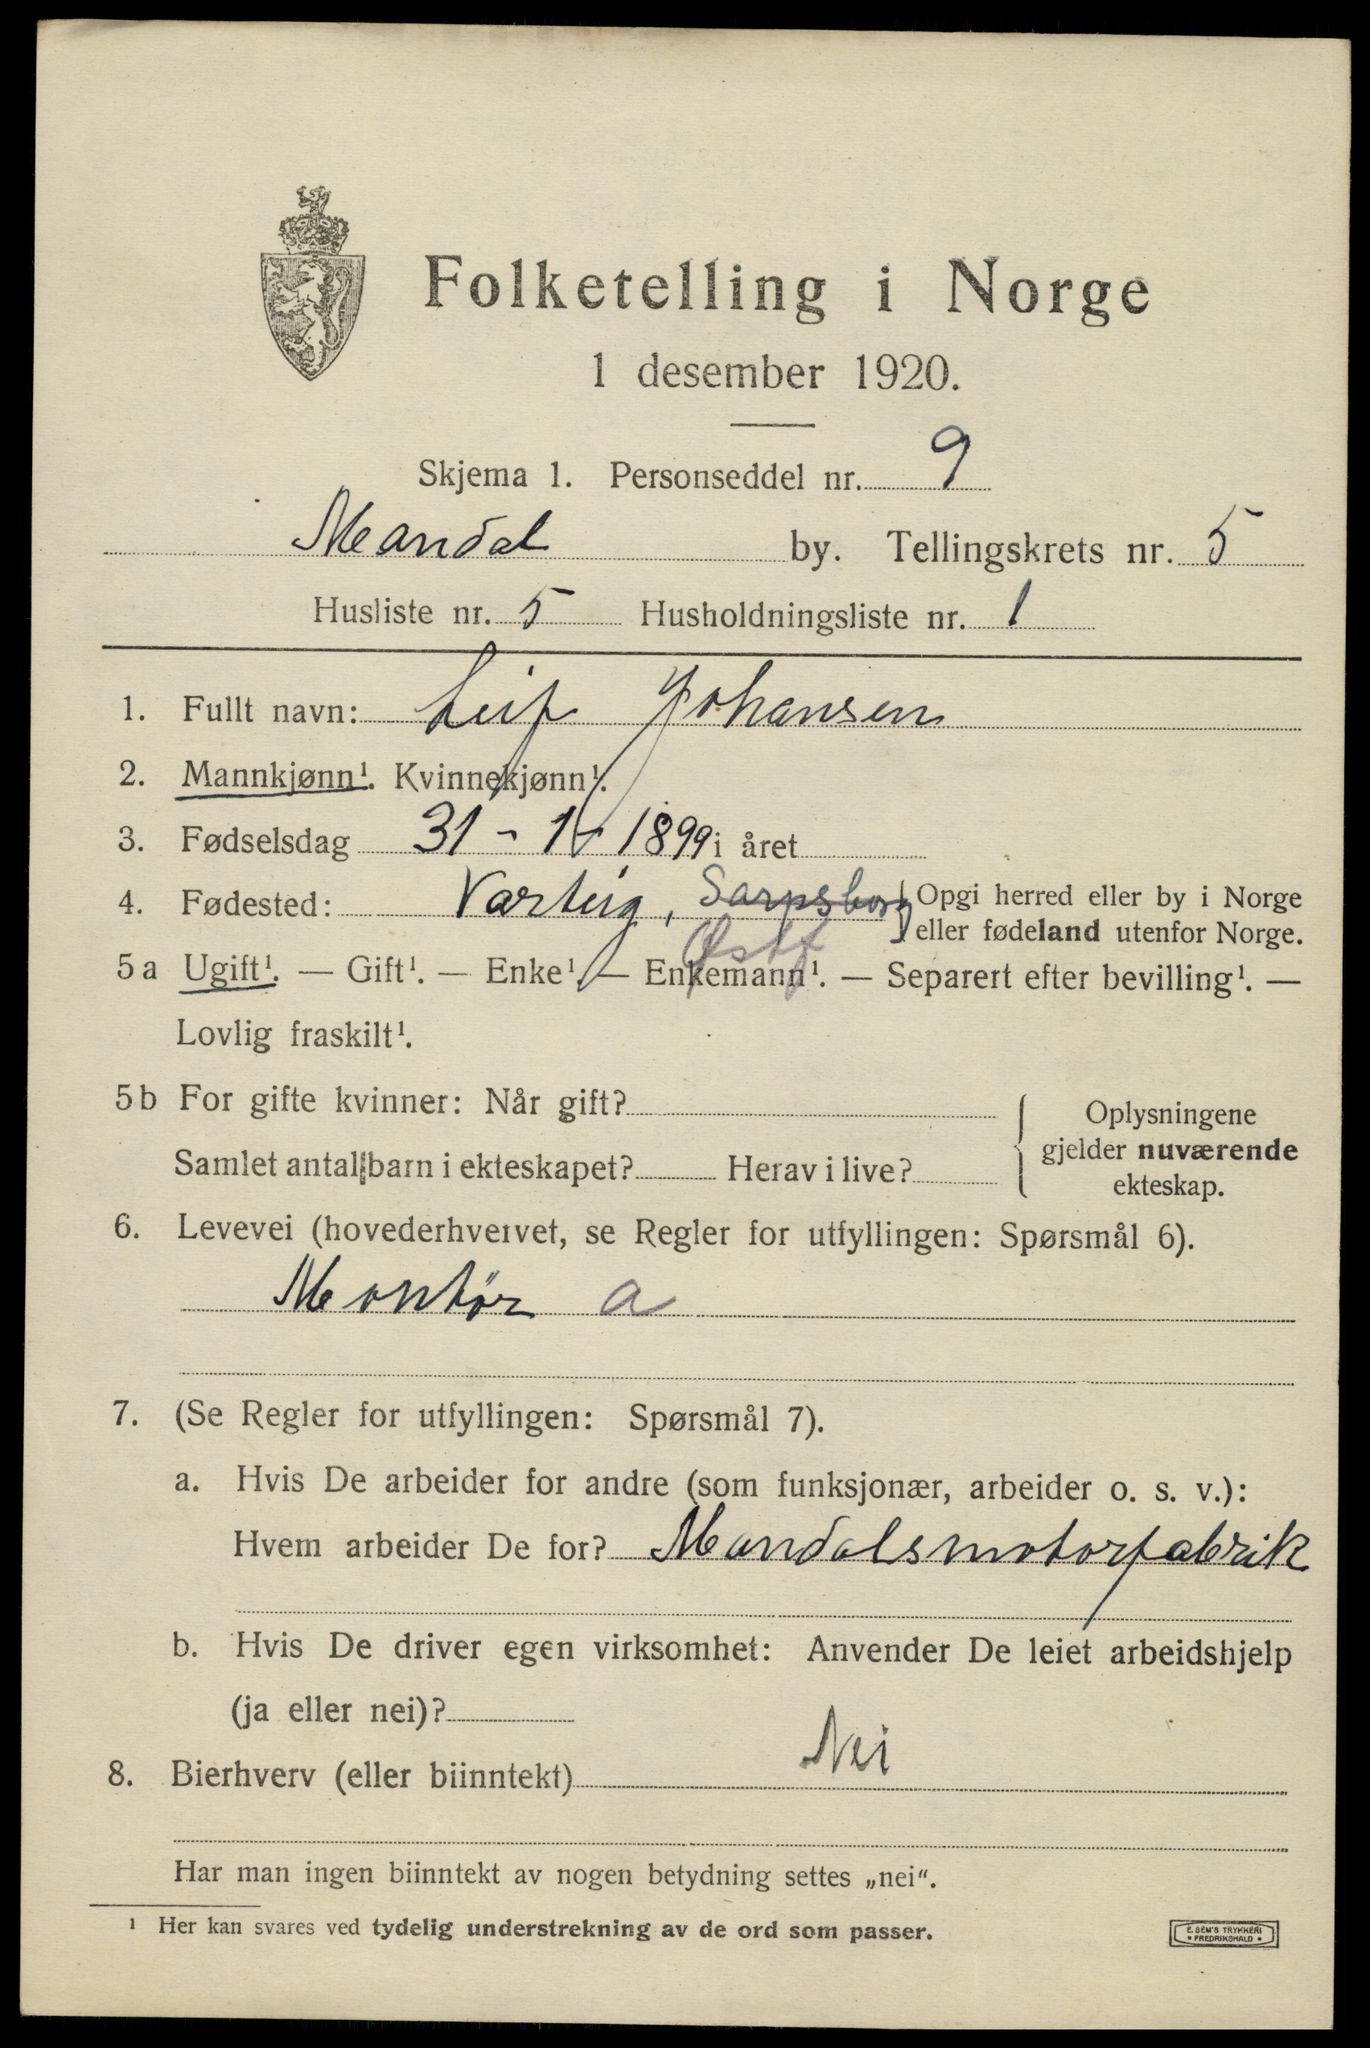 Folketelling i Norge
1 desember 1920.
Skjema 1. Personseddel nr. 9
Mandal by. Tellingskrets nr. 5
Husliste nr. 5 Husholdningsliste nr. 1
1. Fullt navn: Leif Johansen
2. Mannkjønn¹. Kvinnekjønn¹.
3. Fødselsdag 31 - 1 - 1899 i året
4. Fødested: Varteig, Sarpsborg Opgi herred eller by i Norge
Østf eller fødeland utenfor Norge.
5 a Ugift¹. — Gift¹. — Enke¹. — Enkemann¹. — Separert efter bevilling¹. —
Lovlig fraskilt¹.
5 b For gifte kvinner: Når gift? Oplysningene
gjelder nuværende
Samlet antal barn i ekteskapet? Herav i live? ekteskap.
6. Levevei (hovederhvervet, se Regler for utfyllingen: Spørsmål 6).
Montør a
7. (Se Regler for utfyllingen: Spørsmål 7).
a. Hvis De arbeider for andre (som funksjonær, arbeider o. s. v.):
Hvem arbeider De for? Mandalsmotorfabrik
b. Hvis De driver egen virksomhet: Anvender De leiet arbeidshjelp
(ja eller nei)?
8. Bierhverv (eller biinntekt) Nei
Har man ingen biinntekt av nogen betydning settes „nei“.
¹ Her kan svares ved tydelig understrekning av de ord som passer.
E. SEM'S TRYKKERI
• FREDRIKSHALD •